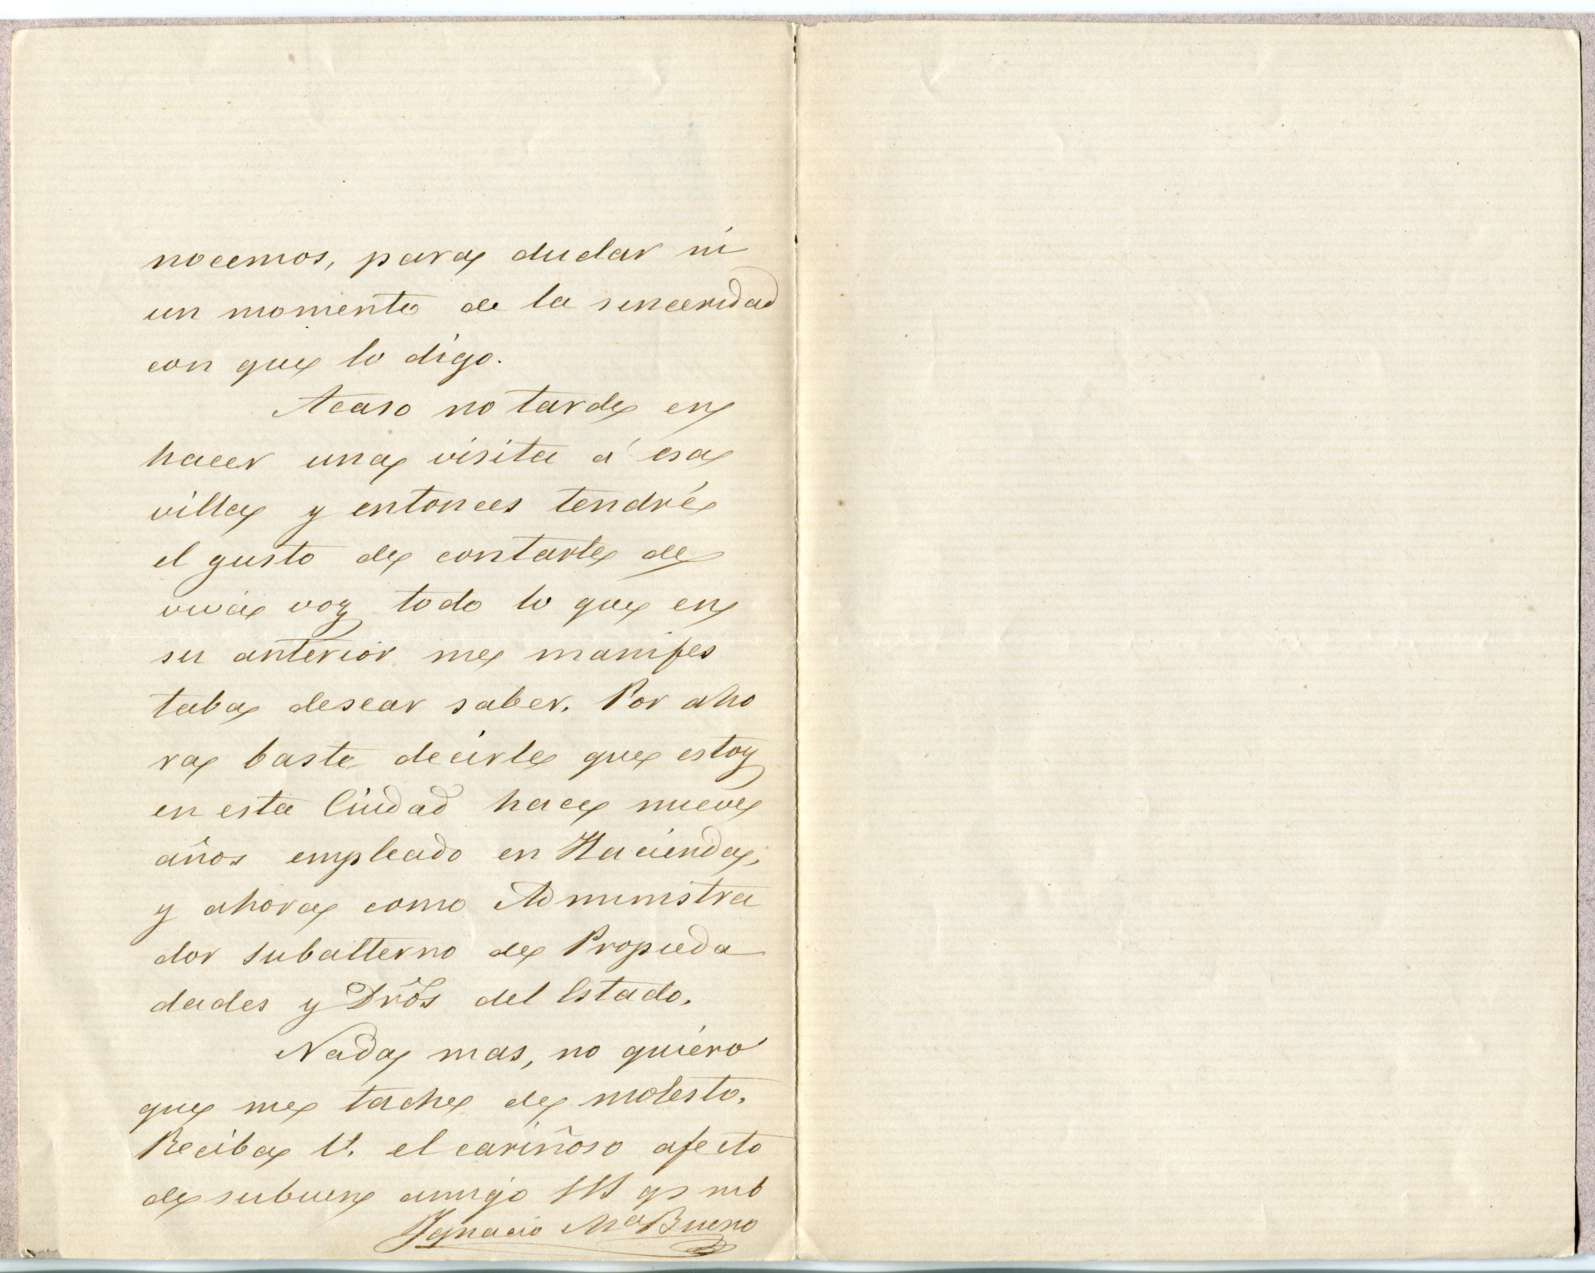 nocemos, para dudar ni
un momento de la sinceridad
con que lo digo.
Acaso no tarde en
hacer una visita á esa
villa y entonces tendré
el gusto de contarle de
viva voz todo lo que en
su anterior me manifes
taba desear saber. Por aho
ra baste decirle que estoy
en esta Ciudad hace nueve
años empleado en Hacienda,
y ahora como Administra
dor subalterno de Propieda
dades y Dros del Estado.
Nada mas, no quiero
que me tache de molesto.
Reciba V. el cariñoso afecto
de su buen amigo SSS qs mb
Ignacio Ma Bueno